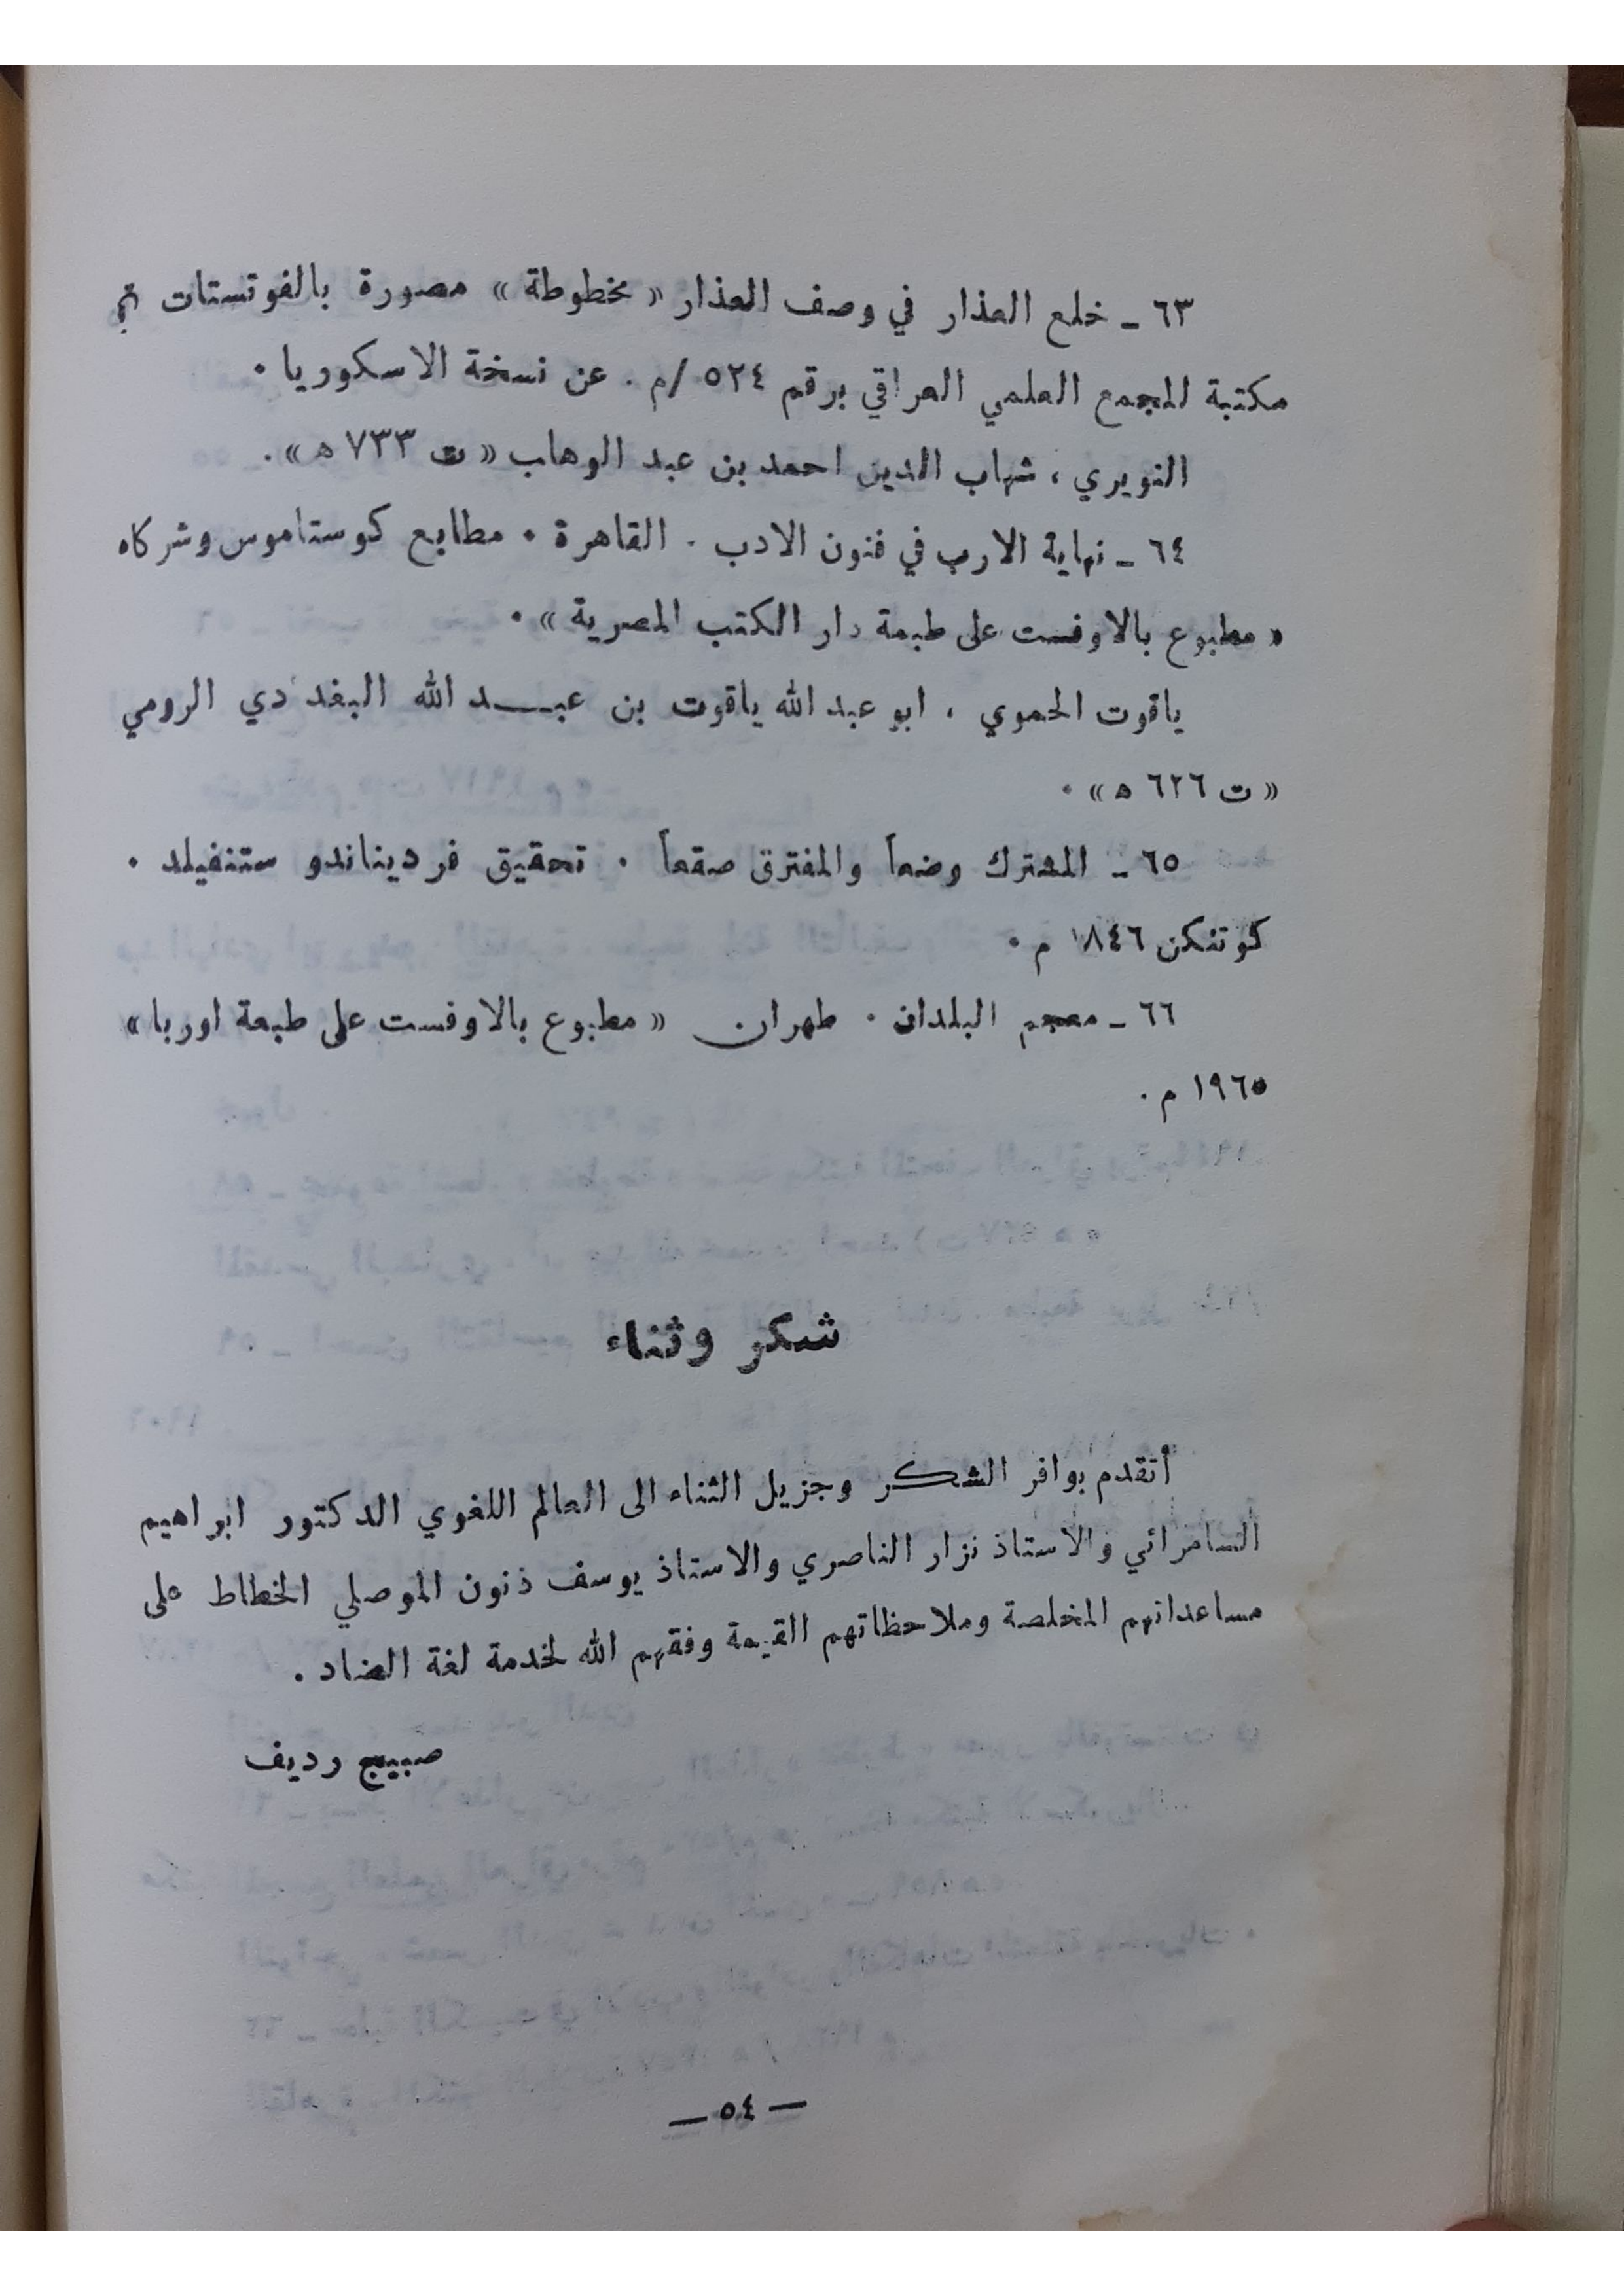 ٦٣ ـ خلع العذار في وصف العذار « مخطوطة » مصورة بالفوتستات في
مكتبة المجمع العلمي العراقي برقم ٥٢٤ /م . عن نسخة الاسكوريا .
النويري ، شهاب الدين احمد بن عبد الوهاب « ت ٧٣٣ ه » .
٦٤ ـ نهاية الارب في فنون الادب . القاهرة . مطابع كوستاموس وشركاه
« مطبوع بالاوفست على طبعة دار الكتب المصرية » .
ياقوت الحموي ، ابو عبد الله ياقوت بن عبـــد الله البغدادي الرومي
« ت ٦٢٦ ه » .
٦٥ ـ المشترك وضعاً والمفترق صقعاً . تحقيق فرديناندو ستنفيلد .
كوتنكن ١٨٤٦ م .
٦٦ ـ معجم البلدان . طهران « مطبوع بالاوفست على طبعة اوربا »
١٩٦٥ م .
شكر وثناء
أتقدم بوافر الشكر وجزيل الثناء الى العالم اللغوي الدكتور ابراهيم
السامرائي والاستاذ نزار الناصري والاستاذ يوسف ذنون الموصلي الخطاط على
مساعداتهم المخلصة وملاحظاتهم القيمة وفقهم الله لخدمة لغة الضاد .
صبيح رديف
— ٥٤ —